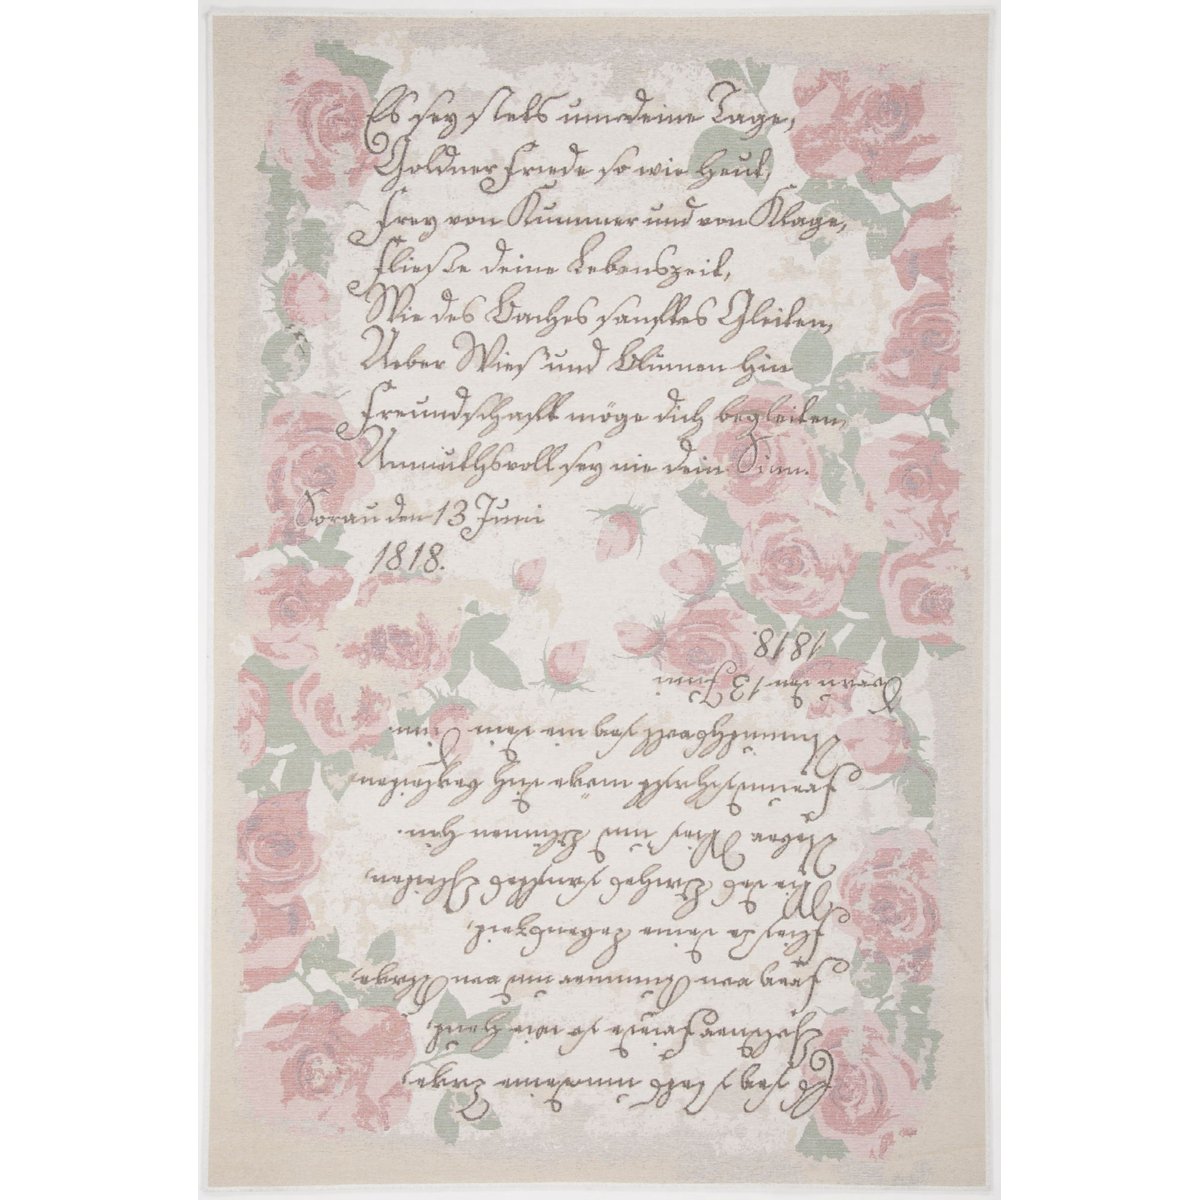 Es sey stets um deine Tage,
Goldner Friede so wie heut,
Frey von Kummer und von Klage,
Fließe deine Lebenszeit,
Wie des Baches sanftes Gleiten,
Ueber Wies und Blumen hin
Freundschaft möge dich begleiten,
Anmuthsvoll sey nie dein Sinn.
Sorau den 13 Juni
1818.
Es sey stets um deine Tage,
Goldner Friede so wie heut,
Frey von Kummer und von Klage,
Fließe deine Lebenszeit,
Wie des Baches sanftes Gleiten,
Ueber Wies und Blumen hin.
Freundschaft möge dich begleiten,
Anmuthsvoll sey nie dein Sinn.
Sorau den 13 Juni
1818.